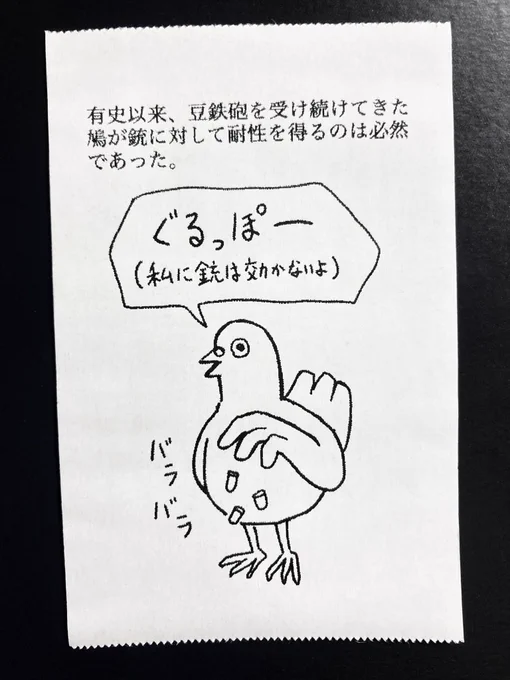 有史以来、豆鉄砲を受け続けてきた
鳩が銃に対して耐性を得るのは必然
であった。
ぐるっぽー
(私に銃は効かないよ)
バラ
バラ